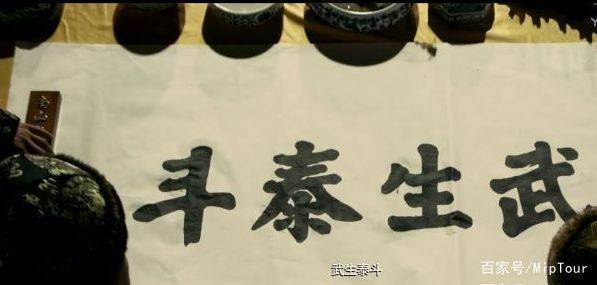 武生泰斗
武生泰斗
百家号/MipTour